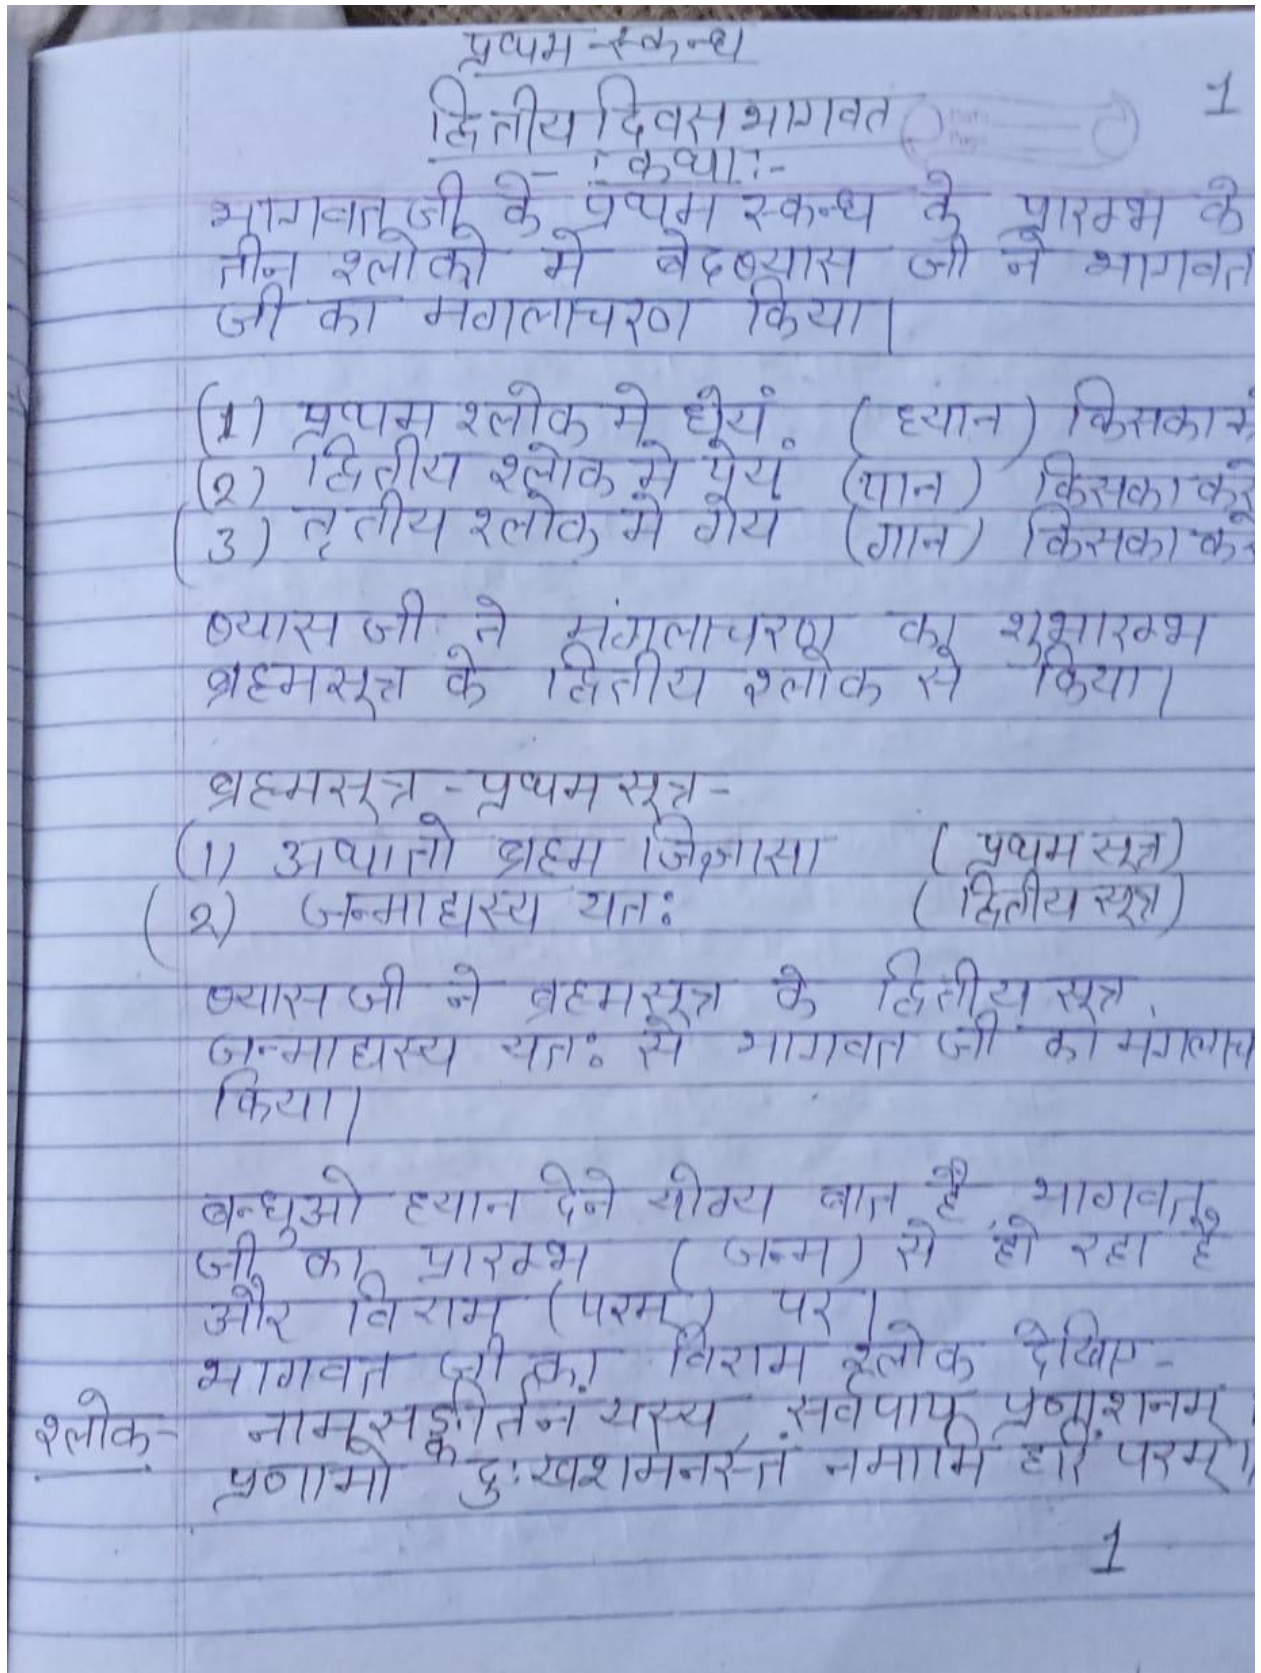 प्रथम-स्कन्ध
1
द्वितीय दिवस भागवत
-: कथा:-
भागवत जी के प्रथम स्कन्ध के प्रारम्भ के
तीन श्लोको मे बेदब्यास जी ने भागवत
जी का मंगलाचरण किया।
(1) प्रथम श्लोक मे धेयं (ध्यान) किसका
(2) द्वितीय श्लोक मे पेयं (पान) किसका करे
(3) तृतीय श्लोक मे गेय (गान) किसका करे
ब्यास जी ने मंगलाचरण का शुभारम्भ
ब्रह्मसूत्र के द्वितीय श्लोक से किया।
ब्रह्मसूत्र - प्रथम सूत्र -
(1) अथातो ब्रह्म जिज्ञासा (प्रथम सूत्र)
(2) जन्माद्यस्य यतः (द्वितीय सूत्र)
ब्यास जी ने ब्रह्मसूत्र के द्वितीय सूत्र
जन्माद्यस्य यतः से भागवत जी का मंगलाच
किया।
बन्धुओ ध्यान देने योग्य बात है भागवत
जी का प्रारम्भ (जन्म) से हो रहा है
और विराम (परम) पर।
भागवत जी का विराम श्लोक देखिए-
श्लोक- नामसङ्कीर्तन यस्य सर्वपाप प्रणाशनम्।
प्रणामो दुःखशमनस्तं नमामि हरिं परम्॥
1